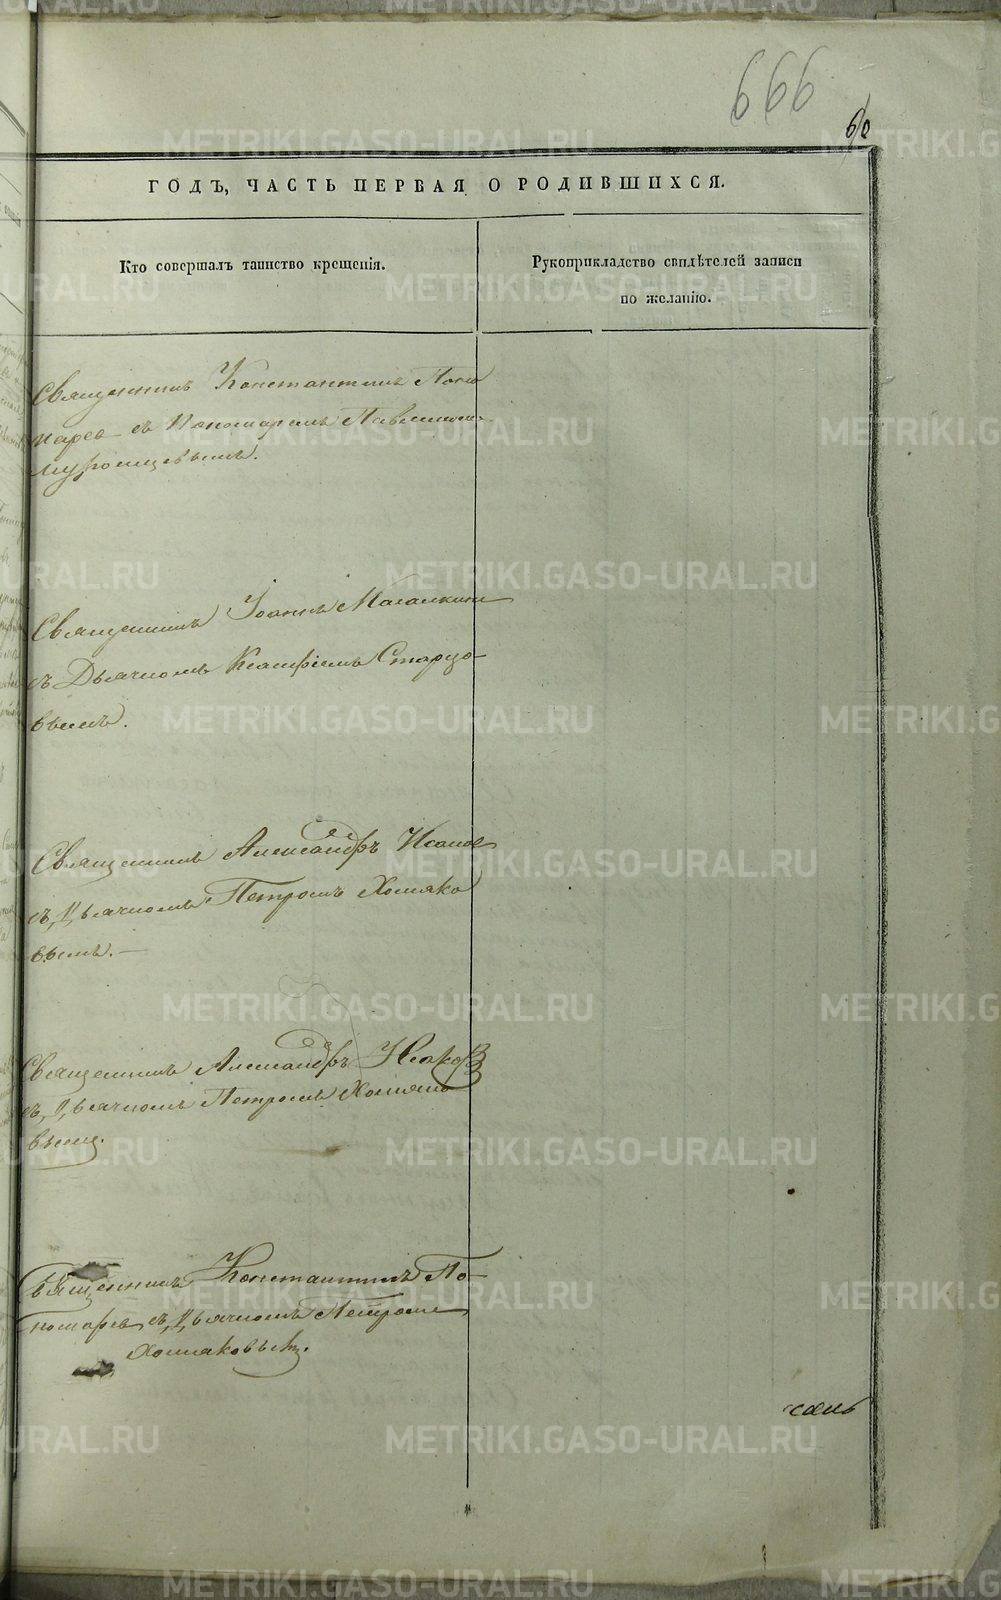 666
60
ГОДЪ, ЧАСТЬ ПЕРВАЯ О РОДИВШИХСЯ.
Кто совершалъ таинство крещенія.
Рукоприкладство свидѣтелей записи
по желанію.
Священникъ Константинъ Поно
маревъ съ Пономаремъ Павлиномъ
Муромцевымъ.
Священникъ Іоаннъ
съ Дьячкомъ Старцо-
вымъ.
Священникъ Александръ Исаковъ
съ Дьячкомъ Петромъ Хомяко
вымъ.—
Священникъ Александръ Исаковъ
съ Дьячкомъ Петромъ Хомяко
вымъ.
Священникъ Константинъ По-
номаревъ съ Дьячкомъ Петромъ
Хомяковымъ.
METRIKI.GASO-URAL.RU